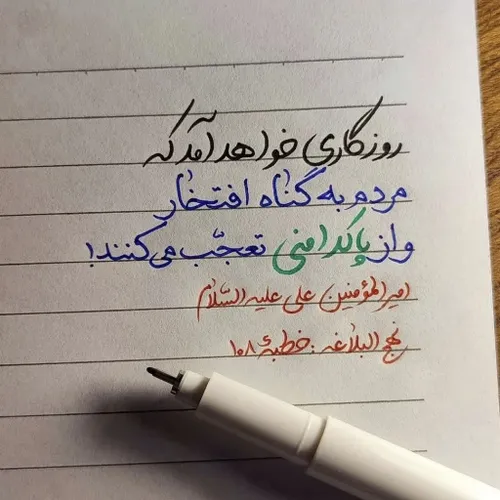 روزگاری خواهد آمد که
مردم به گناه افتخار
و از پاکدامنی تعجّب می‌کنند!
امیرالمؤمنین علی علیه السّلام
نهج البلاغه: خطبهٔ ۱۰۸